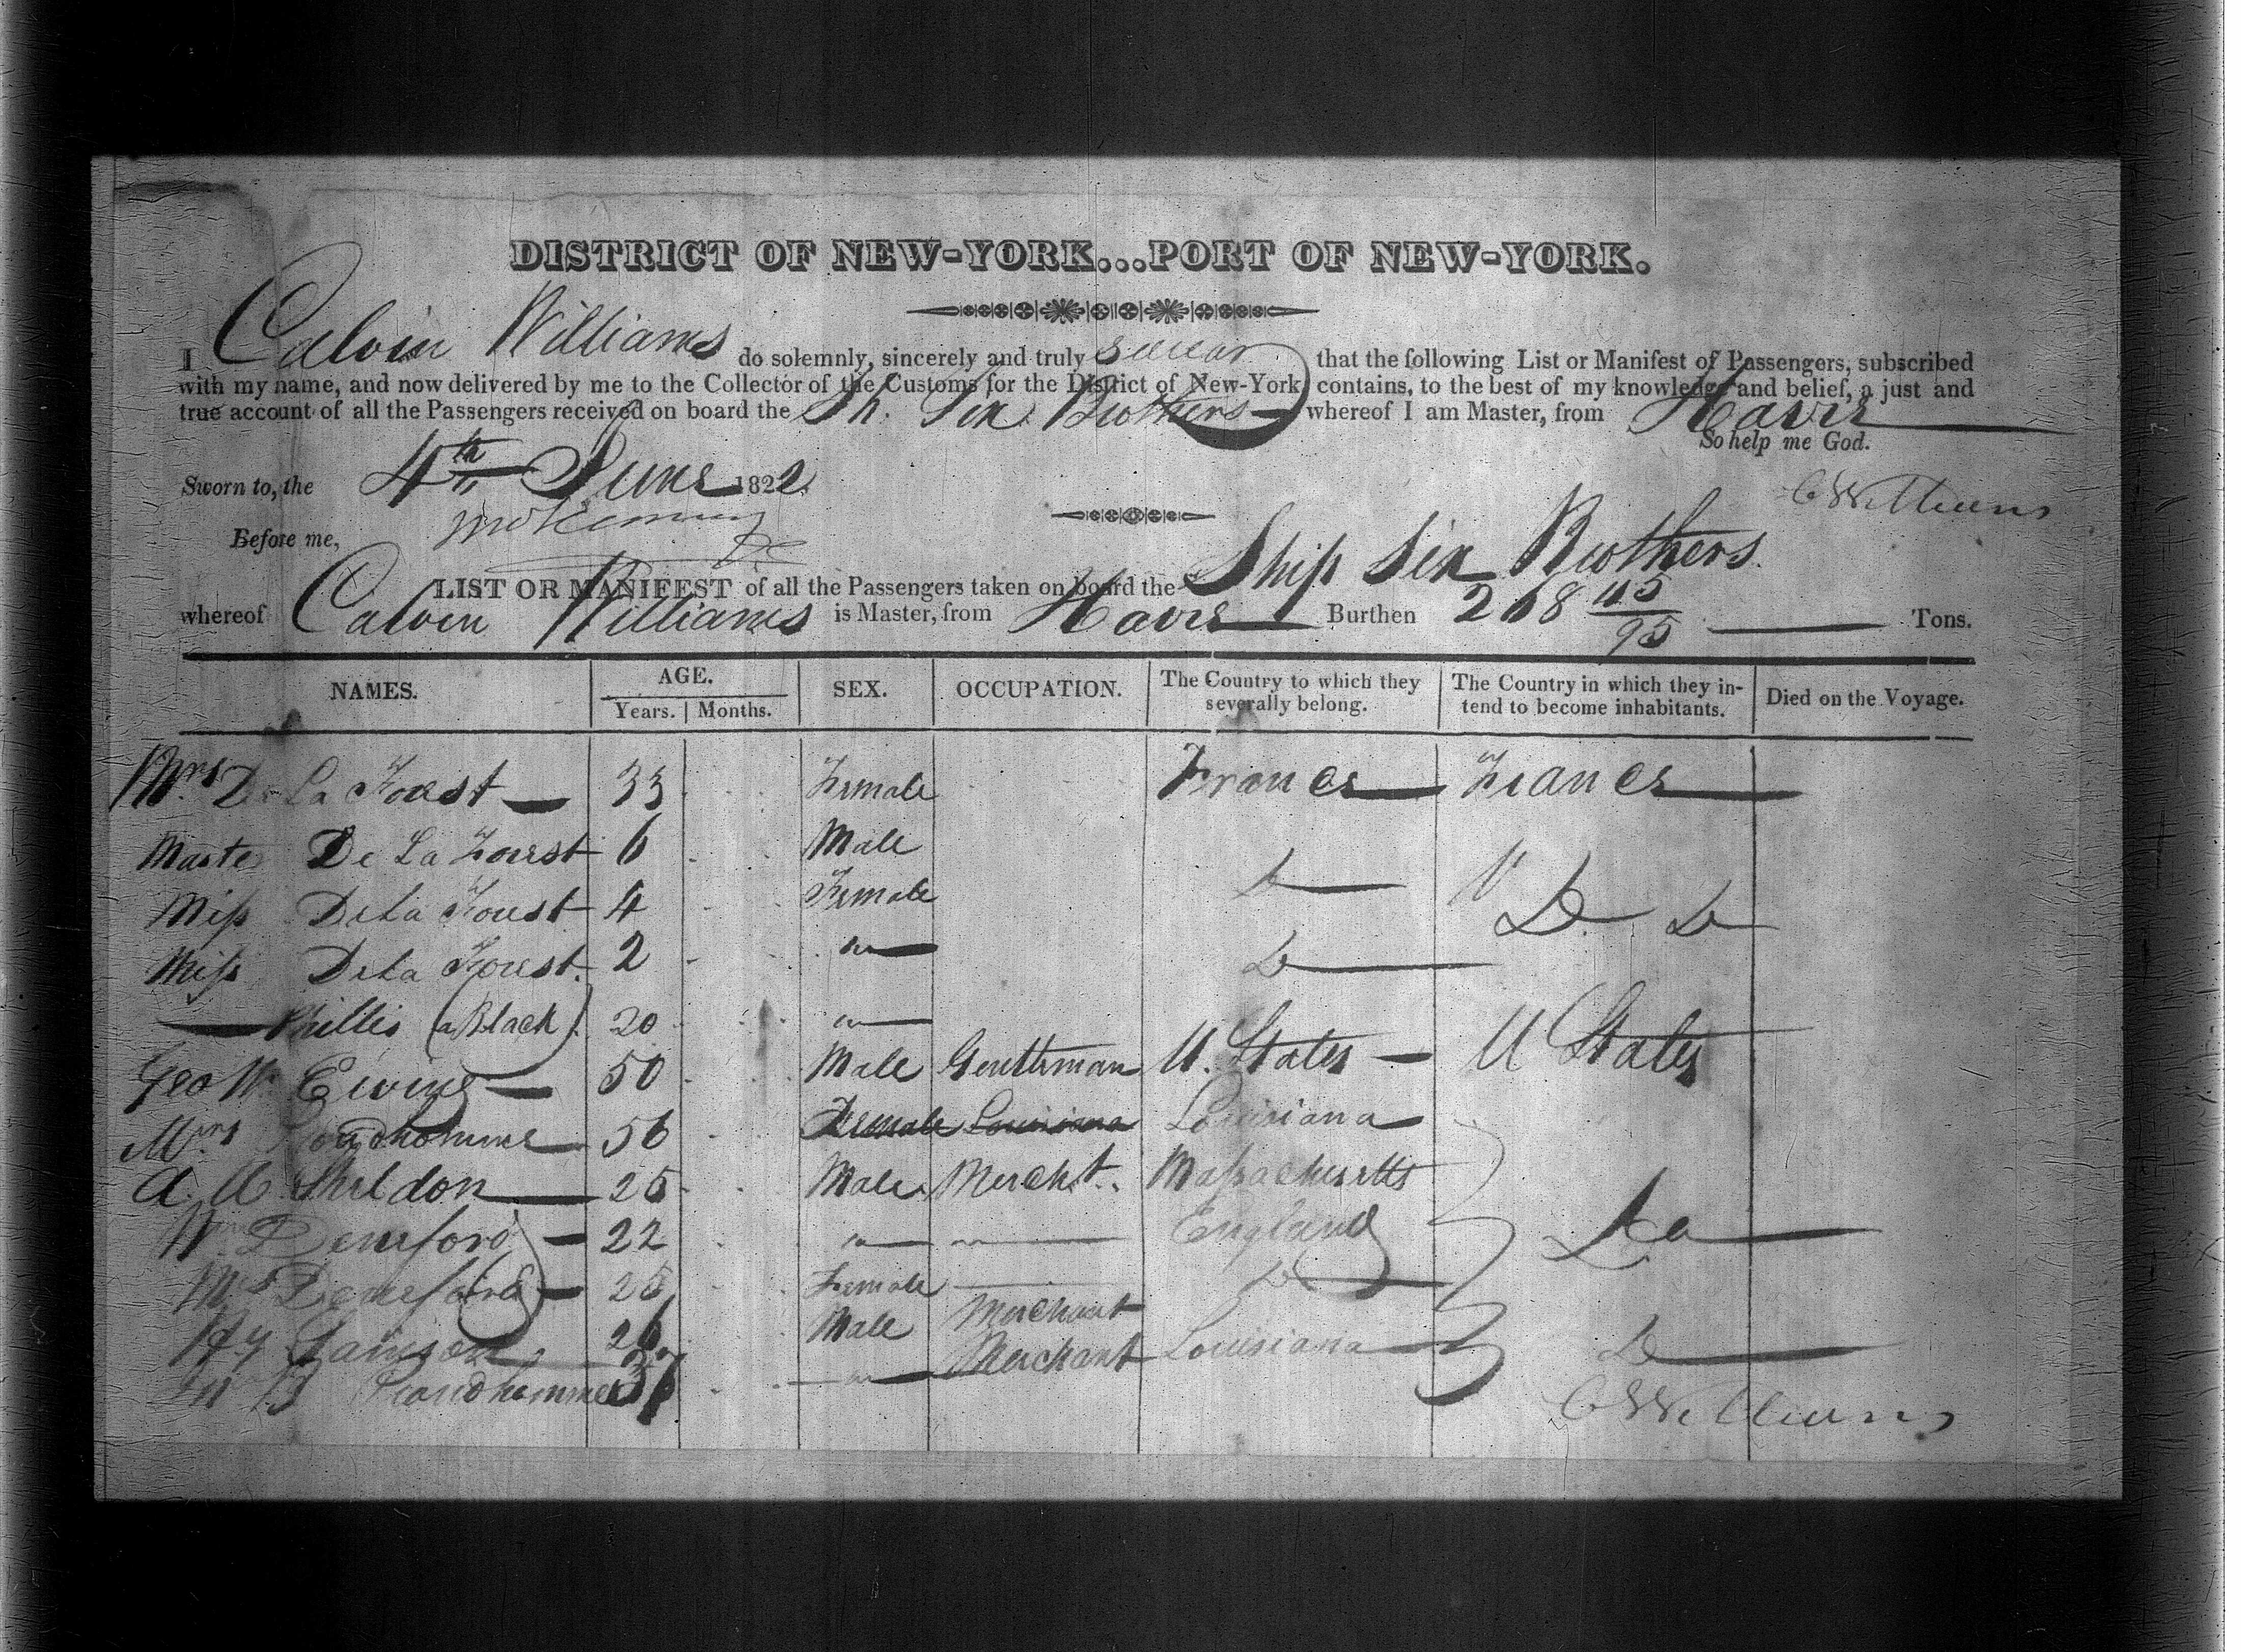 DISTRICT OF NEW-YORK...PORT OF NEW-YORK.
I Calvin Williams do solemnly, sincerely and truly swear that the following List or Manifest of Passengers, subscribed
with my name, and now delivered by me to the Collector of the Customs for the District of New-York, contains, to the best of my knowledge and belief, a just and
true account of all the Passengers received on board the Sh. Six Brothers whereof I am Master, from Havre
So help me God.
Sworn to, the 4th June 1822
C Williams
Before me,
LIST OR MANIFEST of all the Passengers taken on board the Ship Six Brothers
whereof Calvin Williams is Master, from Havre Burthen 268 45/95 Tons.
NAMES. AGE. Years. Months. SEX. OCCUPATION. The Country to which they severally belong. The Country in which they intend to become inhabitants. Died on the Voyage.
Mrs De La Forest 33 Female France France
Master De La Forest 6 Male Do
Miss De La Forest 4 Female Do Do
Miss De La Forest 2 " Do
Phillis (a Black) 20 "
Geo W. Ewing 50 Male Gentleman U. States U States
Mrs Proudhomme 56 Female Louisiana Louisiana
A. Sheldon 25 Male Mercht. Massachusetts
Wm Dereford 22 " " England Do
Mrs Dereford 25 Female Do
Hy 26 Male Merchant
B Proudhomme 37 " Merchant Louisiana Do
C Williams